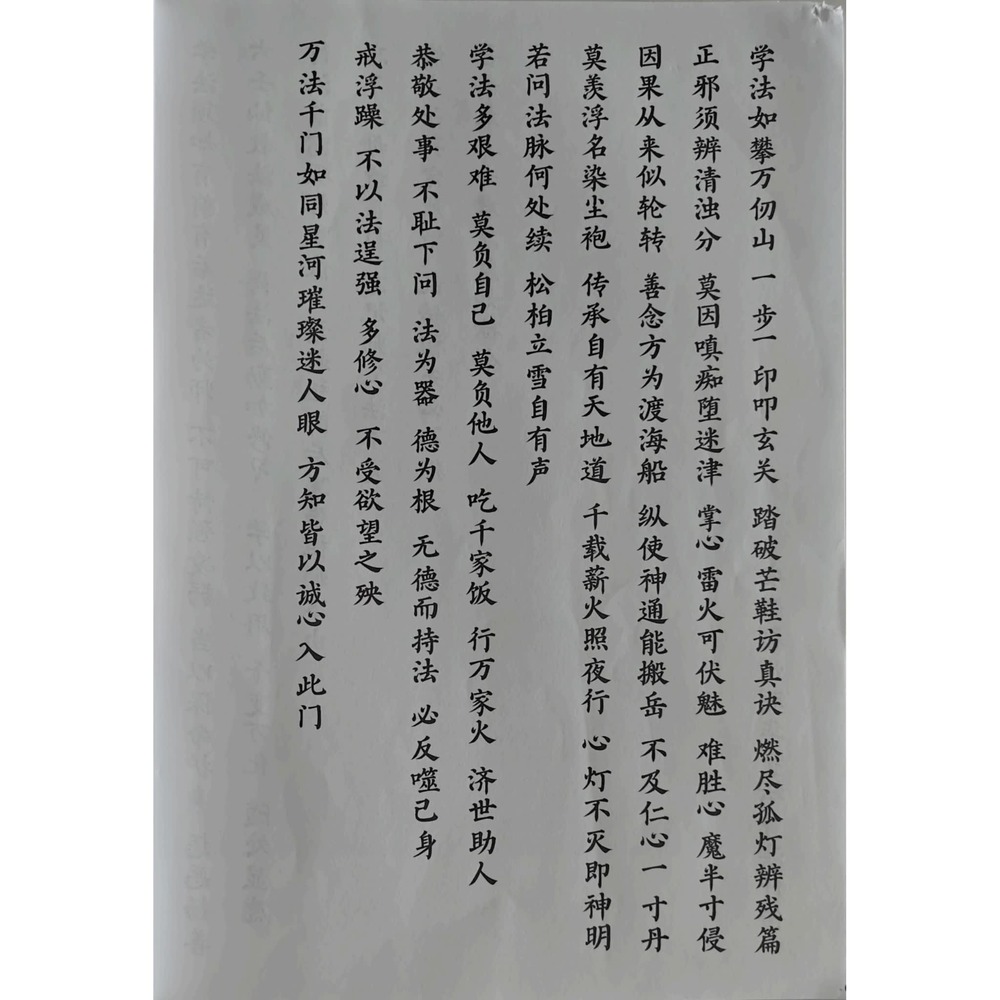 学法如攀万仞山 一步一印叩玄关 踏破芒鞋访真诀 燃尽孤灯辨残篇
正邪须辨清浊分 莫因嗔痴堕迷津 掌心雷火可伏魅 难胜心魔半寸侵
因果从来似轮转 善念方为渡海船 纵使神通能搬岳 不及仁心一寸丹
莫羡浮名染尘袍 传承自有天地道 千载薪火照夜行 心灯不灭即神明
若问法脉何处续 松柏立雪自有声
学法多艰难 莫负自己 莫负他人 吃千家饭 行万家火 济世助人
恭敬处事 不耻下问 法为器 德为根 无德而持法 必反噬己身
戒浮躁 不以法逞强 多修心 不受欲望之殃
万法千门如同星河璀璨迷人眼 方知皆以诚心入此门